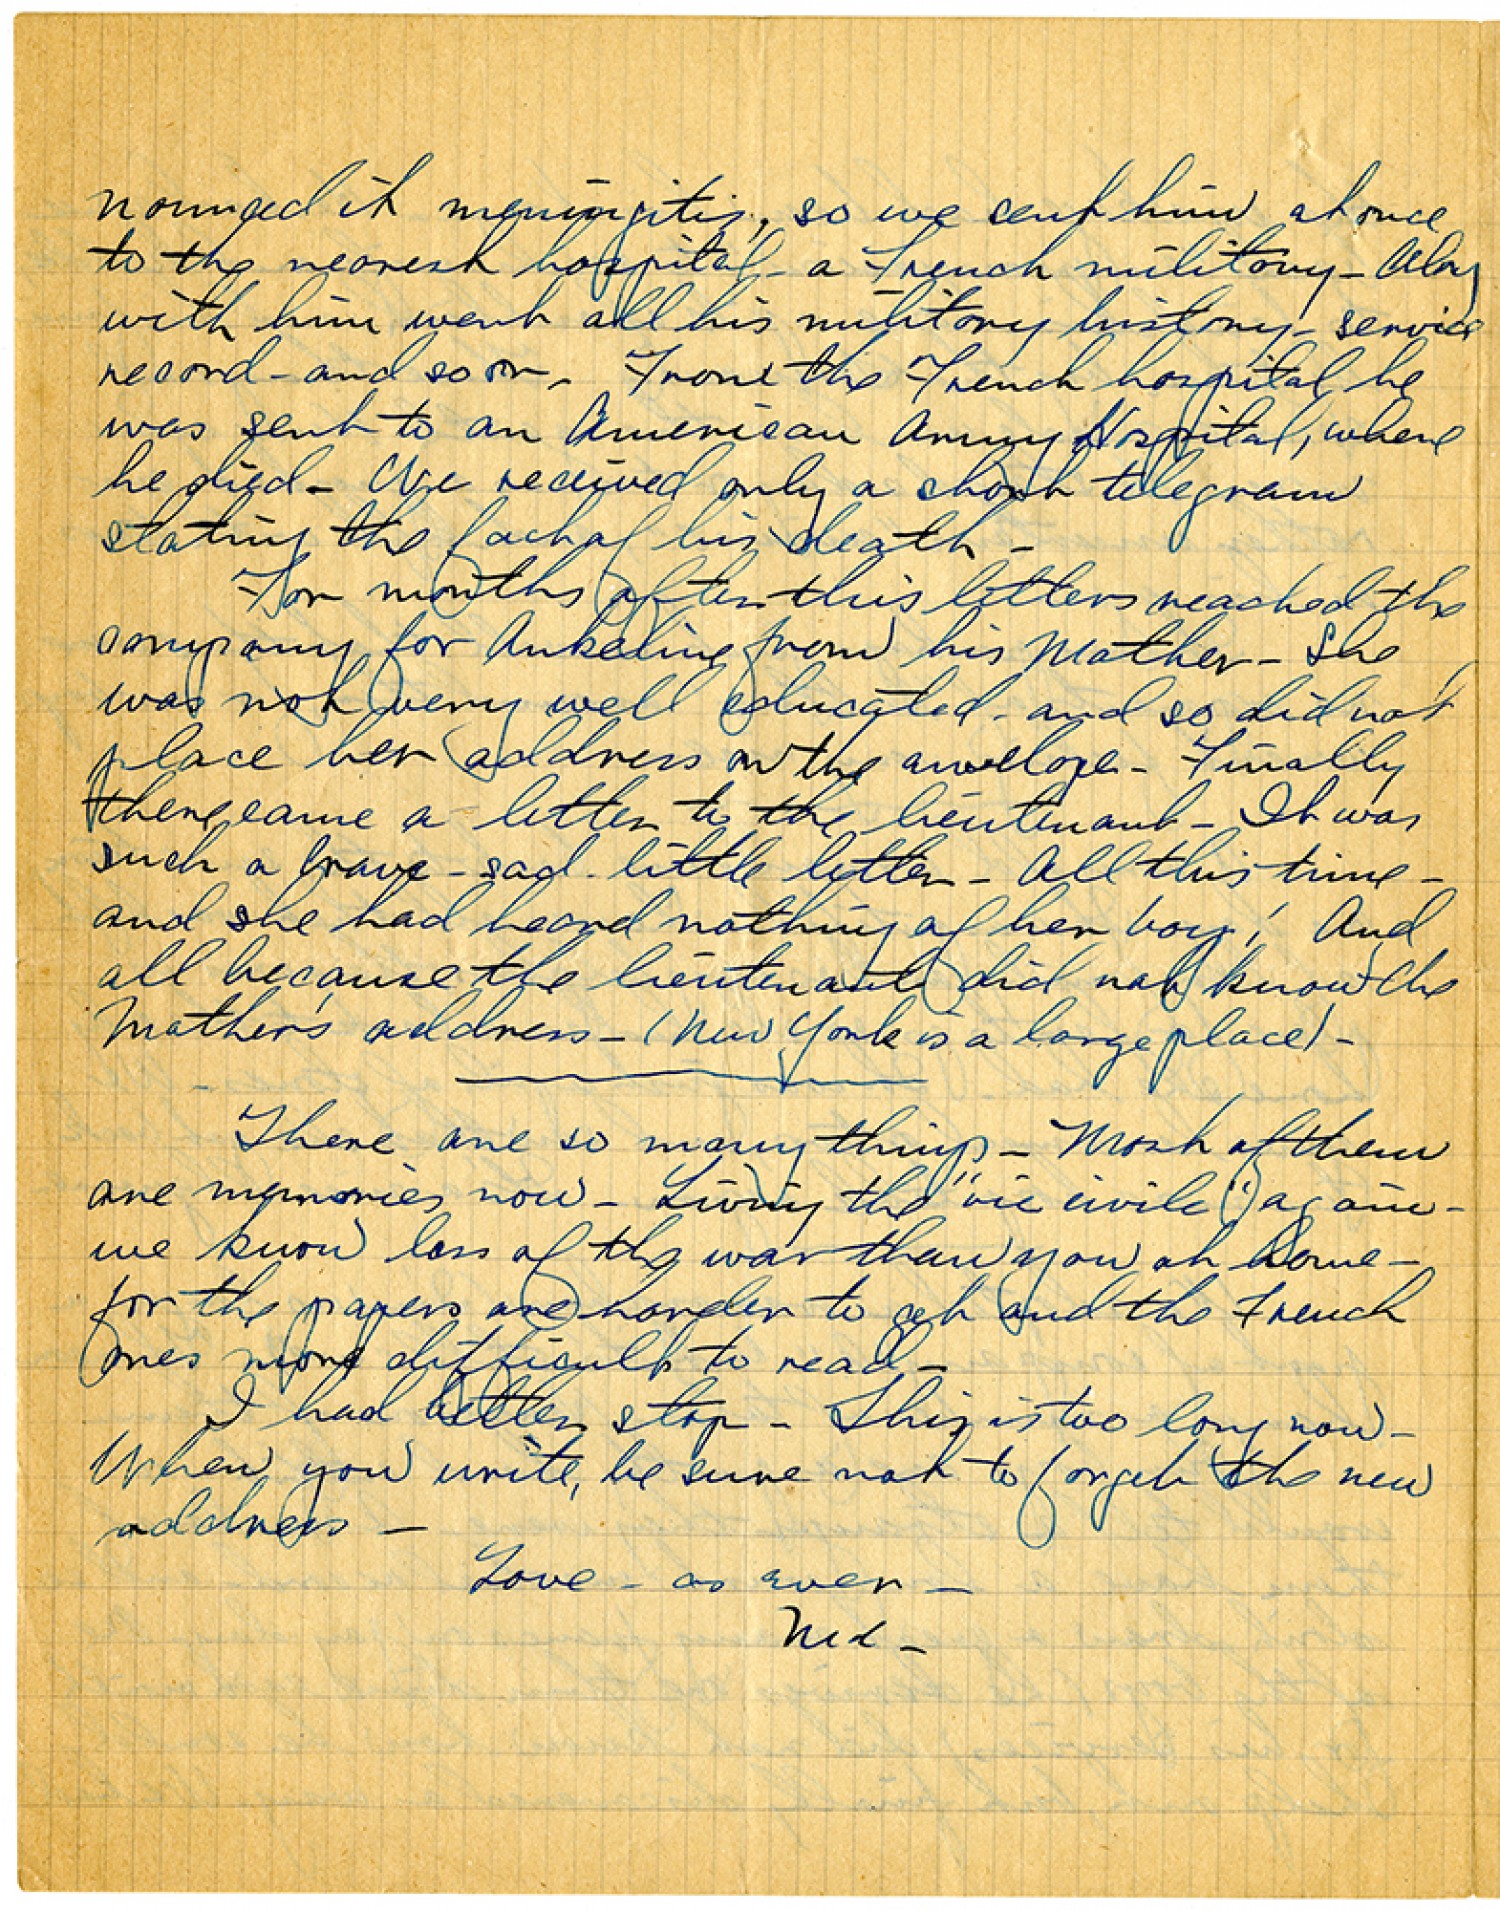 nounced it meningitis, so we sent him at once
to the nearest hospital - a French military - Along
with him went all his military history - service
record - and so on - From the French hospital he
was sent to an American Army Hospital, where
he died - We received only a short telegram
stating the fact of his death -
For months after this letters reached the
company for from his Mother - She
was not very well educated - and so did not
place her address on the anvelope - Finally
there came a letter to the lieutenant - It was
such a brave - sad - little letter - All this time -
and she had heard nothing of her boy! And
all because the lieutenant did not know the
Mother's address - (New York is a large place) -
There are so many things - Most of them
are memories now - Living the "vie civile" again -
we know less of the war than you at home -
for the papers are harder to get and the French
ones more difficult to read -
I had better stop - This is too long now -
When you write, be sure not to forget the new
address -
Love - as ever -
Ned -